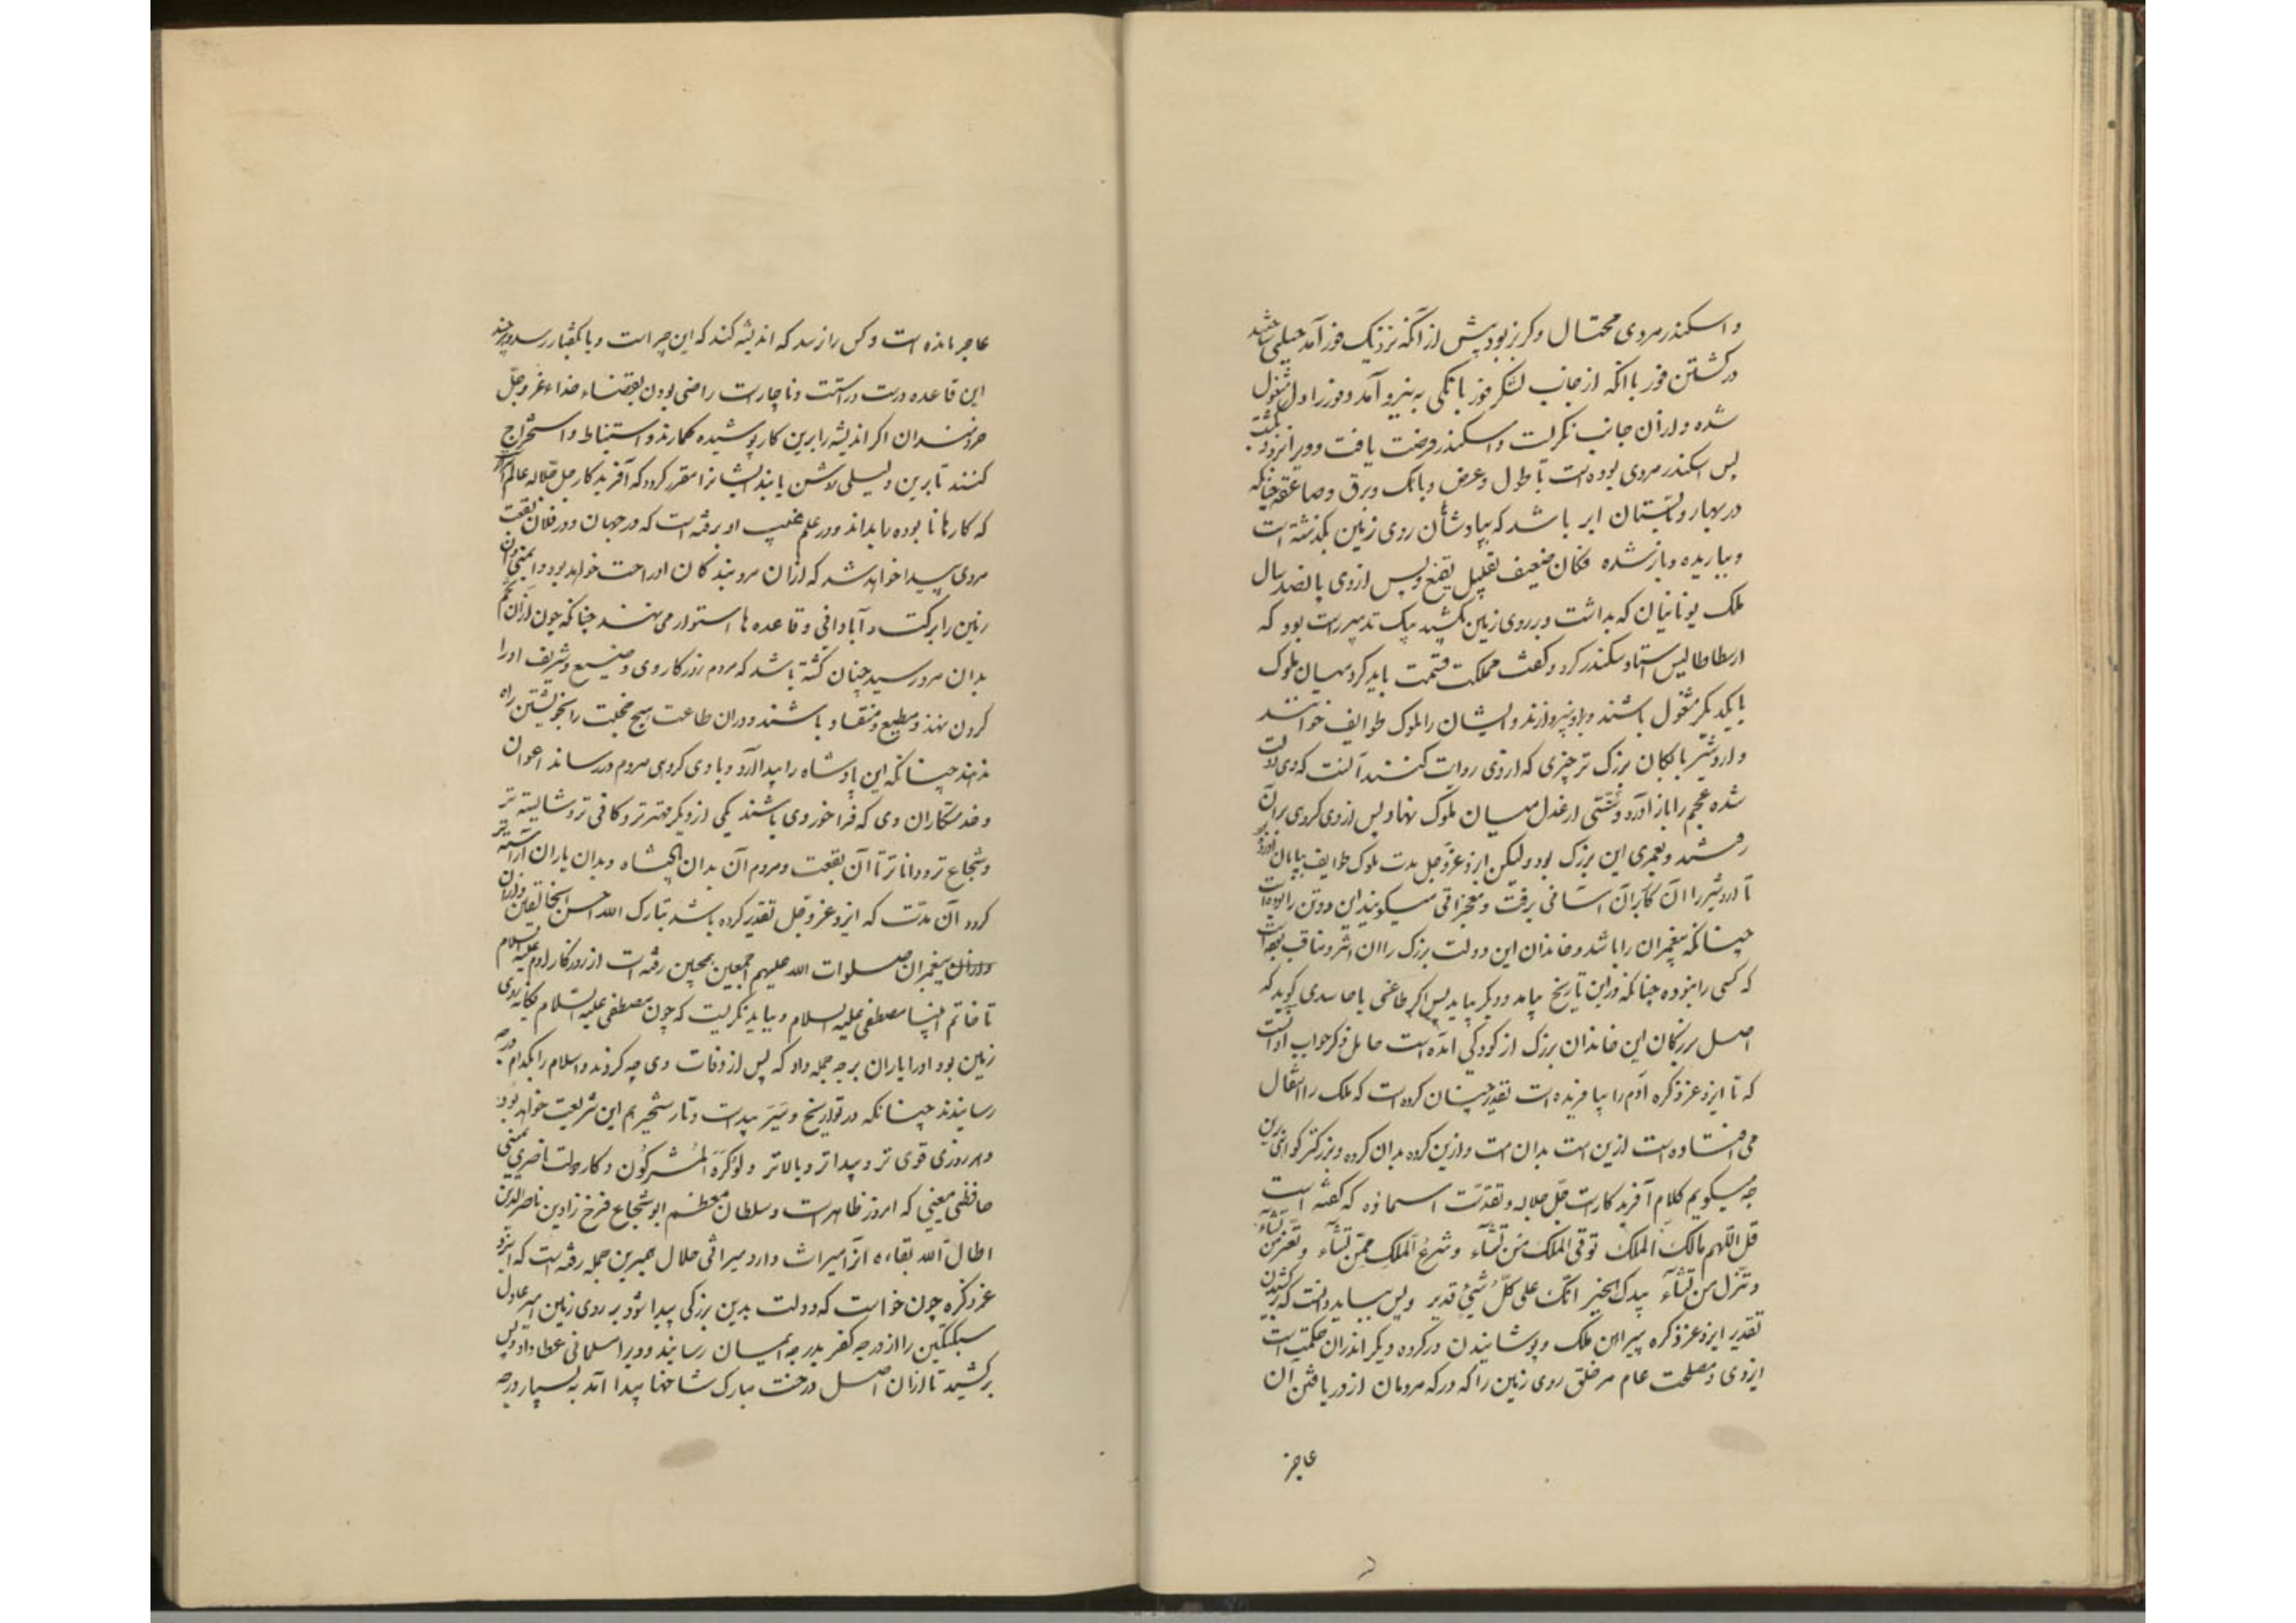 و اسکندر مردی محتال و کربز بود پیش از آنکه نزدیک فور آمد حیلتی
در کشتن فور با آنکه از جانب لشکر فور بانکی به نیرو آمد و فور را دل مشغول
شده و از آن جانب نکریست و اسکندر فرصت یافت و ویرا بزد و بکشت
پس اسکندر مردی بوده است با طول و عرض و بانک و برق و صاعقه چنانکه
در بهار و تابستان ابر باشد که بپادشاهان روی زمین بکذشته است
و بباریده و باز شده فکان ضعیف تقلیل تقشع و پس از وی پانصد سال
ملک یونانیان که بداشت و بر روی زمین بکشید بیک تدبیر راست بود که
ارسطاطالیس استاد سکندر کرد و کفت مملکت قسمت باید کرد میان ملوک
با یکدیکر مشغول باشند و بروم نپردازند و ایشان را ملوک طوایف خوانند
و اردشیر بابکان بزرک تر چیزی که از وی روایت کنند آنست که وی دولت
شده عجم را باز آورد و سنتی از عدل میان ملوک نهاد و پس از وی کروهی بران
رفتند و لعمری این بزرک بود ولیکن ایزد عز و جل مدت ملوک طوایف بپایان
تا اردشیر را آن کار بدان آسانی برفت و معجزاتی میکویند این دو تن را بوده است
چنانکه پیغمبران را باشد و خاندان این دولت بزرک را آن اثر و مناقب بوده است
که کسی را نبوده چنانکه در این تاریخ بیامد و دیکر بیاید پس اکر طاعنی یا حاسدی کوید که
اصل بزرکان این خاندان بزرک از کودکی آمده است خامل ذکر جواب او آنست
که تا ایزد عز ذکره آدم را بیافریده است تقدیر چنان کرده است که ملک را انتقال
می افتاده است ازین امت بدان امت و ازین کروه بدان کروه و بزرکتر کواهی برین
چه میکویم کلام آفریدکار است جل جلاله و تقدست اسماؤه که کفته است
قل اللهم مالک الملک توتی الملک من تشآء و تنزع الملک ممن تشآء و تعز من تشآء
و تذل من تشآء بیدک الخیر انک علی کل شیئ قدیر و پس بباید دانست که برکشیدن
تقدیر ایزد عز ذکره پیراهن ملک و پوشانیدن در کروه دیکر اندران حکمتی است
ایزدی و مصلحت عام مر خلق روی زمین را که درک مردمان از دریافتن آن
عاجز
عاجز مانده است و کس را نرسد که اندیشه کند که این چراست و یا بکفتار رسد و هرچند
این قاعده درست و راستست و ناچار است راضی بودن بقضاء خداء عز و جل
خردمندان اکر اندیشه را برین کار پوشیده کمارند و استنباط و استخراج
کنند تا برین دلیلی روشن یابند ایشانرا مقرر کردد که آفریدکار جل جلاله عالم اسرار
که کارها نابوده را بداند و در علم غیب او برفته است که در جهان در فلان بقعت
مردی پیدا خواهد شد که از آن مرد بندکان او راحت خواهد بود و ایمنی و آن
زمین را برکت و آبادانی و قاعده ها استوار می نهند چنانکه چون از آن تخم
بدان مرد رسید چنان کشته باشد که مردم روزکار وی وضیع و شریف او را
کردن نهند و مطیع و منقاد باشند و در آن طاعت هیچ خجلت را بخویشتن راه
ندهند چنانکه این پادشاه را پیدا آرد و با وی کروهی مردم در رساند اعوان
و خدمتکاران وی که فرا خور وی باشند یکی از دیکر مهتر تر و کافی تر و شایسته تر
و شجاع تر و دانا تر تا آن بقعت و مردم آن بدان پادشاه و بدان یاران آراسته تر
کردد آن مدت که ایزد عز و جل تقدیر کرده باشد تبارک الله احسن الخالقین و از آن
و از آن پیغمبران صلوات الله علیهم اجمعین همچنین رفته است از روزکار آدم علیه السلام
تا خاتم انبیا مصطفی علیه السلام و بباید نکریست که چون مصطفی علیه السلام یکانه روی
زمین بود او را یاران بر چه جمله داد که پس از وفات وی چه کردند و اسلام را بکدام درجه
رسانیدند چنانکه در تواریخ و سیر پیداست و تا رستخیز هم این شریعت خواهد بود
و هر روزی قوی تر و پیدا تر و بالاتر و لو کره المشرکون و کار دولت ناصری یمینی
حافظی معینی که امروز ظاهر است و سلطان معظم ابو شجاع فرخ زاد بن ناصر الدین
اطال الله بقاءه آنرا میراث دارد میراثی حلال همبرین جمله رفته است که ایزد
عز ذکره چون خواست که دولت بدین بزرکی پیدا شود بر روی زمین امیر عادل
سبکتکین را از درجه کفر بدرجه ایمان رسانید و ویرا مسلمانی عطا داد و پس
برکشید تا از آن اصل درخت مبارک شاخها پیدا آمد به بسیار درجه